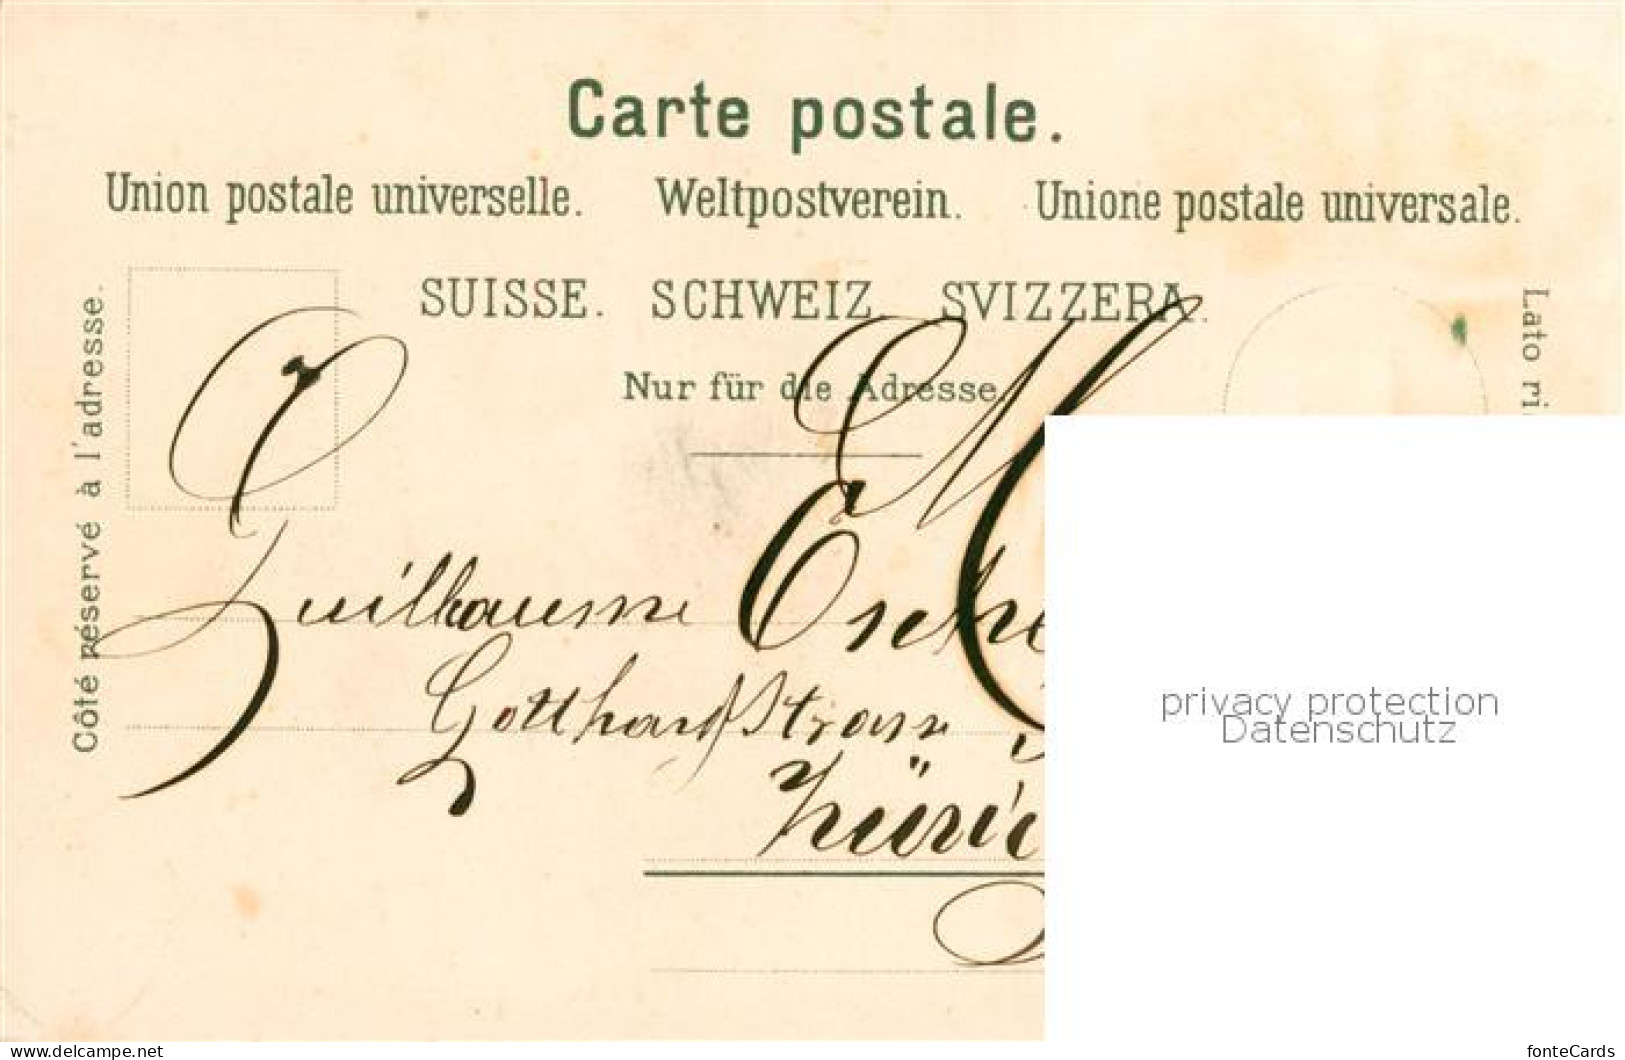 Carte postale.
Union postale universelle. Weltpostverein. Unione postale universale.
SUISSE. SCHWEIZ. SVIZZERA.
Nur für die Adresse.
Côté réservé à l'adresse.
Lato ri
M
Guillaume Esche
Gotthardstrasse
Züric
privacy protection
Datenschutz
www.delcampe.net
fonteCards